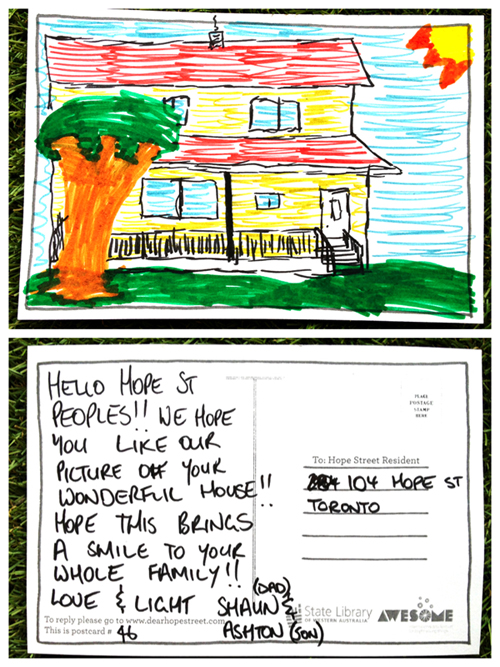 HELLO HOPE ST
PEOPLES!! WE HOPE
YOU LIKE OUR
PICTURE OF YOUR
WONDERFUL HOUSE!!
HOPE THIS BRINGS
A SMILE TO YOUR
WHOLE FAMILY!!
LOVE & LIGHT SHAUN (DAD) &
ASHTON (SON)
To reply please go to www.dearhopestreet.com
This is postcard # 46
PLACE
POSTAGE
STAMP
HERE
To: Hope Street Resident
104 HOPE ST
TORONTO
State Library
OF WESTERN AUSTRALIA
AWESOME